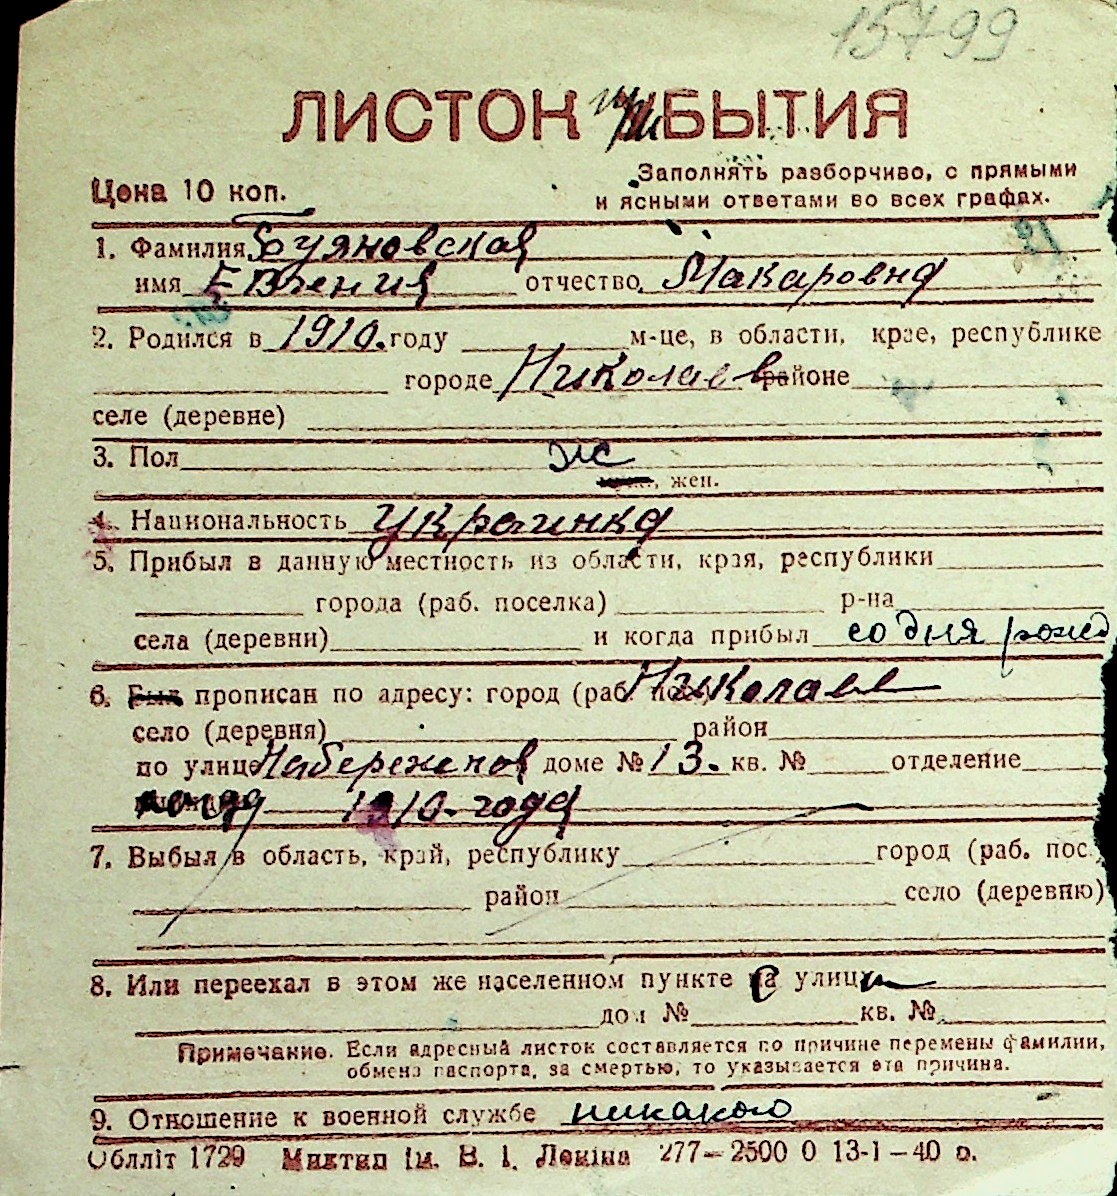 15799
ЛИСТОК ПРИБЫТИЯ
Цена 10 коп.
Заполнять разборчиво, с прямыми
и ясными ответами во всех графах.
1. Фамилия Буяновская
имя Евгения отчество Макаровна
2. Родился в 1910. году м-це, в области, крае, республике
городе Николаев районе
селе (деревне)
3. Пол ж
муж., жен.
4. Национальность украинка
5. Прибыл в данную местность из области, края, республики
города (раб. поселка) р-на
села (деревни) и когда прибыл со дня рожд
6. Был прописан по адресу: город (раб. пос.) Николаев
село (деревня) район
по улице Набережной доме № 13. кв. № отделение
1910. года
7. Выбыл в область, край, республику город (раб. пос.
район село (деревню)
8. Или переехал в этом же населенном пункте с улицы
дом № кв. №
Примечание. Если адресный листок составляется по причине перемены фамилии,
обмена паспорта, за смертью, то указывается эта причина.
9. Отношение к военной службе никакого
Облліт 1729 Миктип ім. В. І. Леніна 277—2500 0 13-I—40 р.